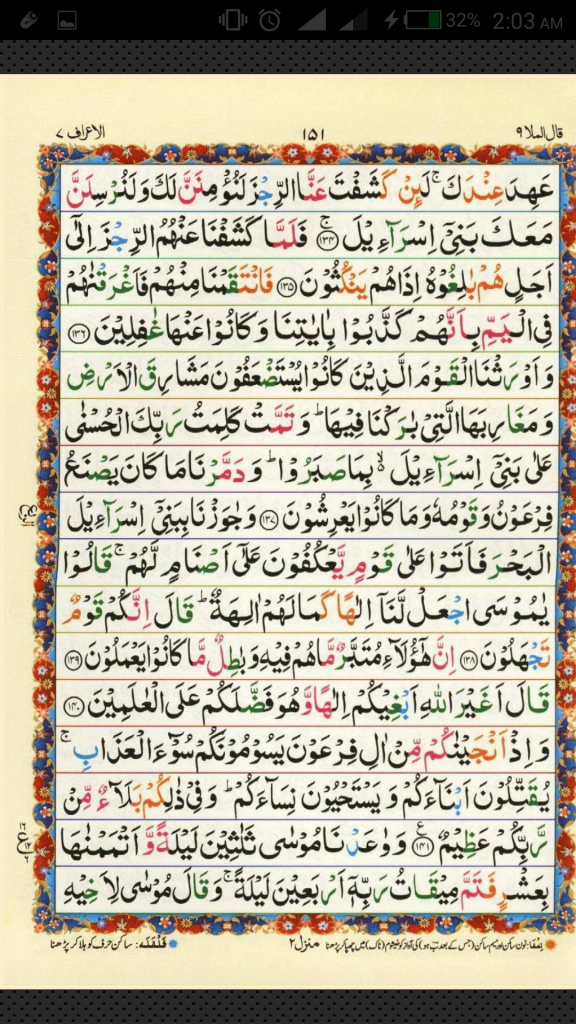 32% 2:03 AM
قال الملا ٩ ١٥١ الاعراف ٧
عَهِدَ عِنْدَكَ ۚ لَئِنْ كَشَفْتَ عَنَّا الرِّجْزَ لَنُؤْمِنَنَّ لَكَ وَ لَنُرْسِلَنَّ
مَعَكَ بَنِيْۤ اِسْرَآءِيْلَ ۚ ﴿۱۳۴﴾ فَلَمَّا كَشَفْنَا عَنْهُمُ الرِّجْزَ اِلٰۤى
اَجَلٍ هُمْ بٰلِغُوْهُ اِذَا هُمْ يَنْكُثُوْنَ ﴿۱۳۵﴾ فَانْتَقَمْنَا مِنْهُمْ فَاَغْرَقْنٰهُمْ
فِي الْيَمِّ بِاَنَّهُمْ كَذَّبُوْا بِاٰيٰتِنَا وَ كَانُوْا عَنْهَا غٰفِلِيْنَ ﴿۱۳۶﴾
وَ اَوْرَثْنَا الْقَوْمَ الَّذِيْنَ كَانُوْا يُسْتَضْعَفُوْنَ مَشَارِقَ الْاَرْضِ
وَ مَغَارِبَهَا الَّتِيْ بٰرَكْنَا فِيْهَا ؕ وَ تَمَّتْ كَلِمَتُ رَبِّكَ الْحُسْنٰى
عَلٰى بَنِيْۤ اِسْرَآءِيْلَ ۙ بِمَا صَبَرُوْا ؕ وَ دَمَّرْنَا مَا كَانَ يَصْنَعُ
فِرْعَوْنُ وَ قَوْمُهٗ وَ مَا كَانُوْا يَعْرِشُوْنَ ﴿۱۳۷﴾ وَ جٰوَزْنَا بِبَنِيْۤ اِسْرَآءِيْلَ
الْبَحْرَ فَاَتَوْا عَلٰى قَوْمٍ يَّعْكُفُوْنَ عَلٰۤى اَصْنَامٍ لَّهُمْ ۚ قَالُوْا
يٰمُوْسَى اجْعَلْ لَّنَاۤ اِلٰهًا كَمَا لَهُمْ اٰلِهَةٌ ؕ قَالَ اِنَّكُمْ قَوْمٌ
تَجْهَلُوْنَ ﴿۱۳۸﴾ اِنَّ هٰۤؤُلَآءِ مُتَبَّرٌ مَّا هُمْ فِيْهِ وَ بٰطِلٌ مَّا كَانُوْا يَعْمَلُوْنَ ﴿۱۳۹﴾
قَالَ اَغَيْرَ اللّٰهِ اَبْغِيْكُمْ اِلٰهًا وَّ هُوَ فَضَّلَكُمْ عَلَى الْعٰلَمِيْنَ ﴿۱۴۰﴾
وَ اِذْ اَنْجَيْنٰكُمْ مِّنْ اٰلِ فِرْعَوْنَ يَسُوْمُوْنَكُمْ سُوْٓءَ الْعَذَابِ ۚ
يُقَتِّلُوْنَ اَبْنَآءَكُمْ وَ يَسْتَحْيُوْنَ نِسَآءَكُمْ ؕ وَ فِيْ ذٰلِكُمْ بَلَآءٌ مِّنْ
رَّبِّكُمْ عَظِيْمٌ ﴿۱۴۱﴾ وَ وٰعَدْنَا مُوْسٰى ثَلٰثِيْنَ لَيْلَةً وَّ اَتْمَمْنٰهَا
بِعَشْرٍ فَتَمَّ مِيْقَاتُ رَبِّهٖۤ اَرْبَعِيْنَ لَيْلَةً ۚ وَ قَالَ مُوْسٰى لِاَخِيْهِ
اِخفَا: نون ساکن اور میم ساکن (جس کے بعد ب ہو) کی آواز کو خیشوم (ناک) میں چھپا کر پڑھنا منزل ٢ قَلْقَلَه: ساکن حرف کو ہلا کر پڑھنا